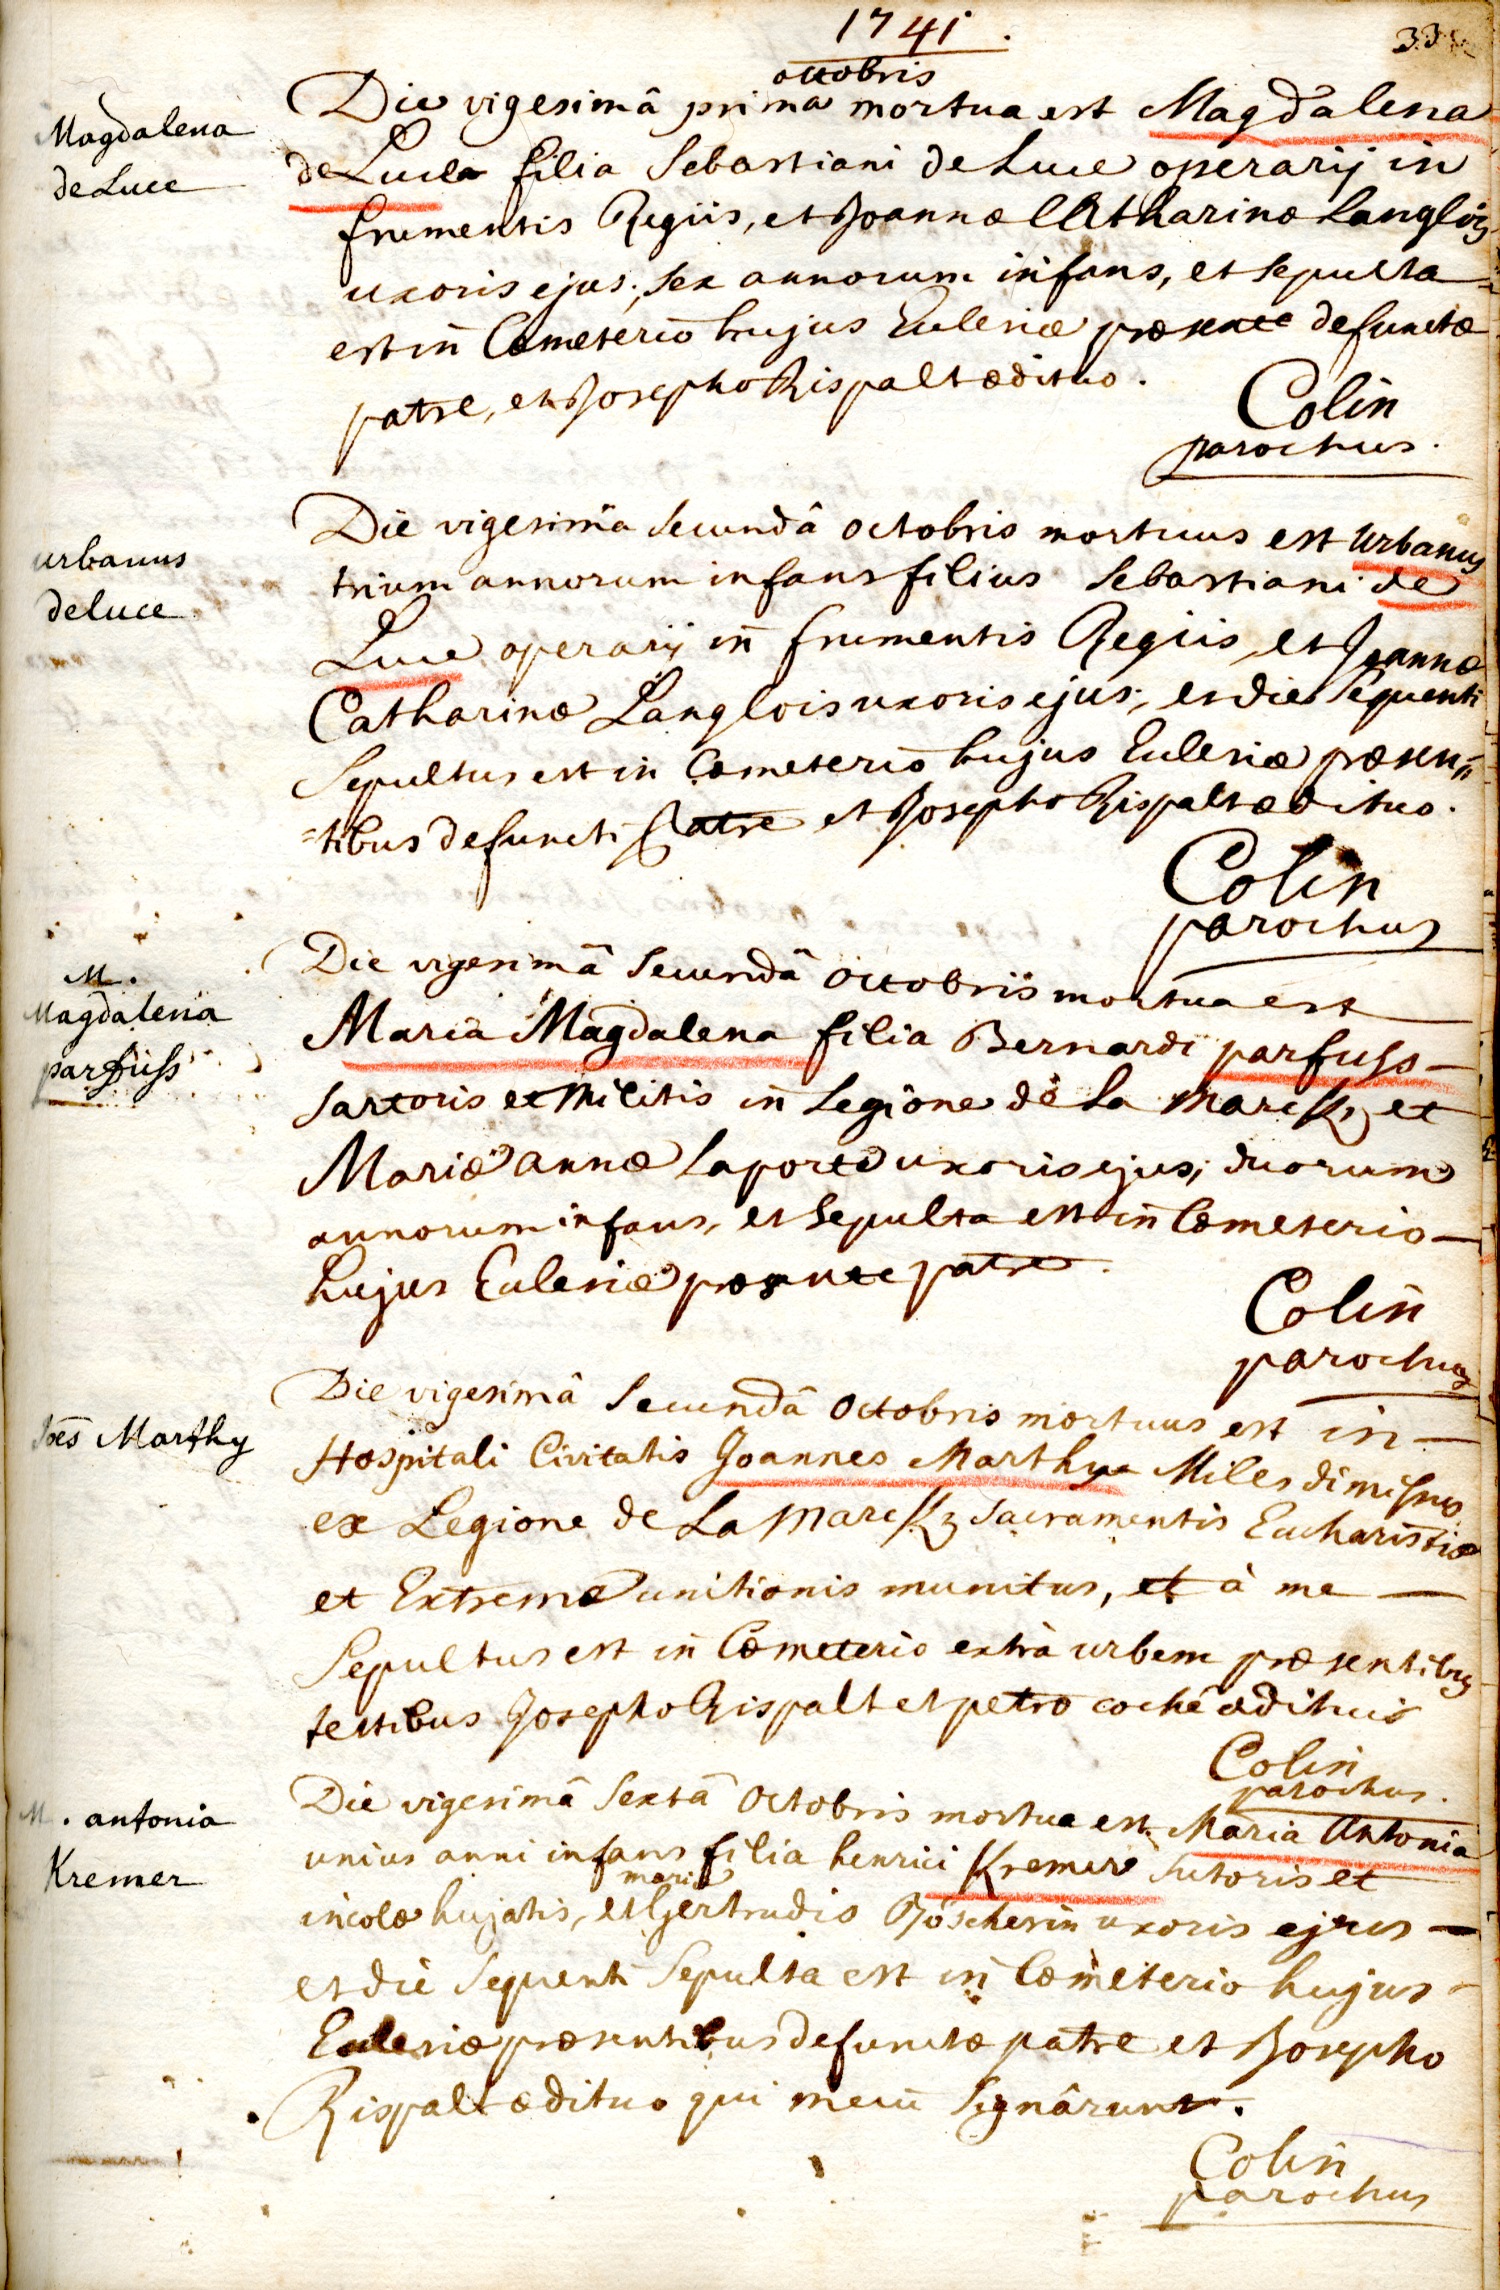 1741.
33
octobris
Magdalena
de Luce
Die vigesimâ prima mortua est Magdalena
de Luce filia Sebastiani de Luce operarij in
frumentis Regiis, et Joannæ Catharinæ Langlois
uxoris ejus; sex annorum infans, et sepulta
est in Cœmeterio hujus Ecclesiæ præsente defunctæ
patre, et Josepho Rispalt ædituo.
Colin
parochus.
urbanus
deluce
Die vigesimâ secundâ octobris mortuus est Urbanus
trium annorum infans filius Sebastiani de
Luce operarij in frumentis Regiis, et Joannæ
Catharinæ Langlois uxoris ejus; et die sequenti
Sepultus est in Cœmeterio hujus Ecclesiæ præsen=
=tibus defuncti patre et Josepho Rispalt ædituo.
Colin
parochus
M.
Magdalena
parfuss
Die vigesimâ secundâ octobris mortua est
Maria Magdalena filia Bernardi parfuss
sartoris et Militis in Legione de La Marck, et
Mariæ annæ laporte uxoris ejus; duorum
annorum infans, et Sepulta est in Cœmeterio
hujus Ecclesiæ præsente patre.
Colin
parochus
Joes Marthy
Die vigesimâ secundâ octobris mortuus est in
Hospitali Civitatis Joannes Marthy Miles dimissus
ex Legione de La Marck, Sacramentis Eucharistiæ
et Extremæ unitionis munitus, et à me
Sepultus est in Cœmeterio extrà urbem præsentibus
testibus Josepho Rispalt et petro coché ædituis
Colin
parochus.
M. antonia
Kremer
Die vigesimâ sextâ octobris mortua est Maria Antonia
unius anni infans filia henrici Kremer sutoris et
mariæ
incolæ hujatis, et Gertrudis Röscherin uxoris ejus
et die sequenti Sepulta est in Cœmeterio hujus
Ecclesiæ præsentibus defunctæ patre et Josepho
Rispalt ædituo qui mecū signârunt.
Colin
parochus